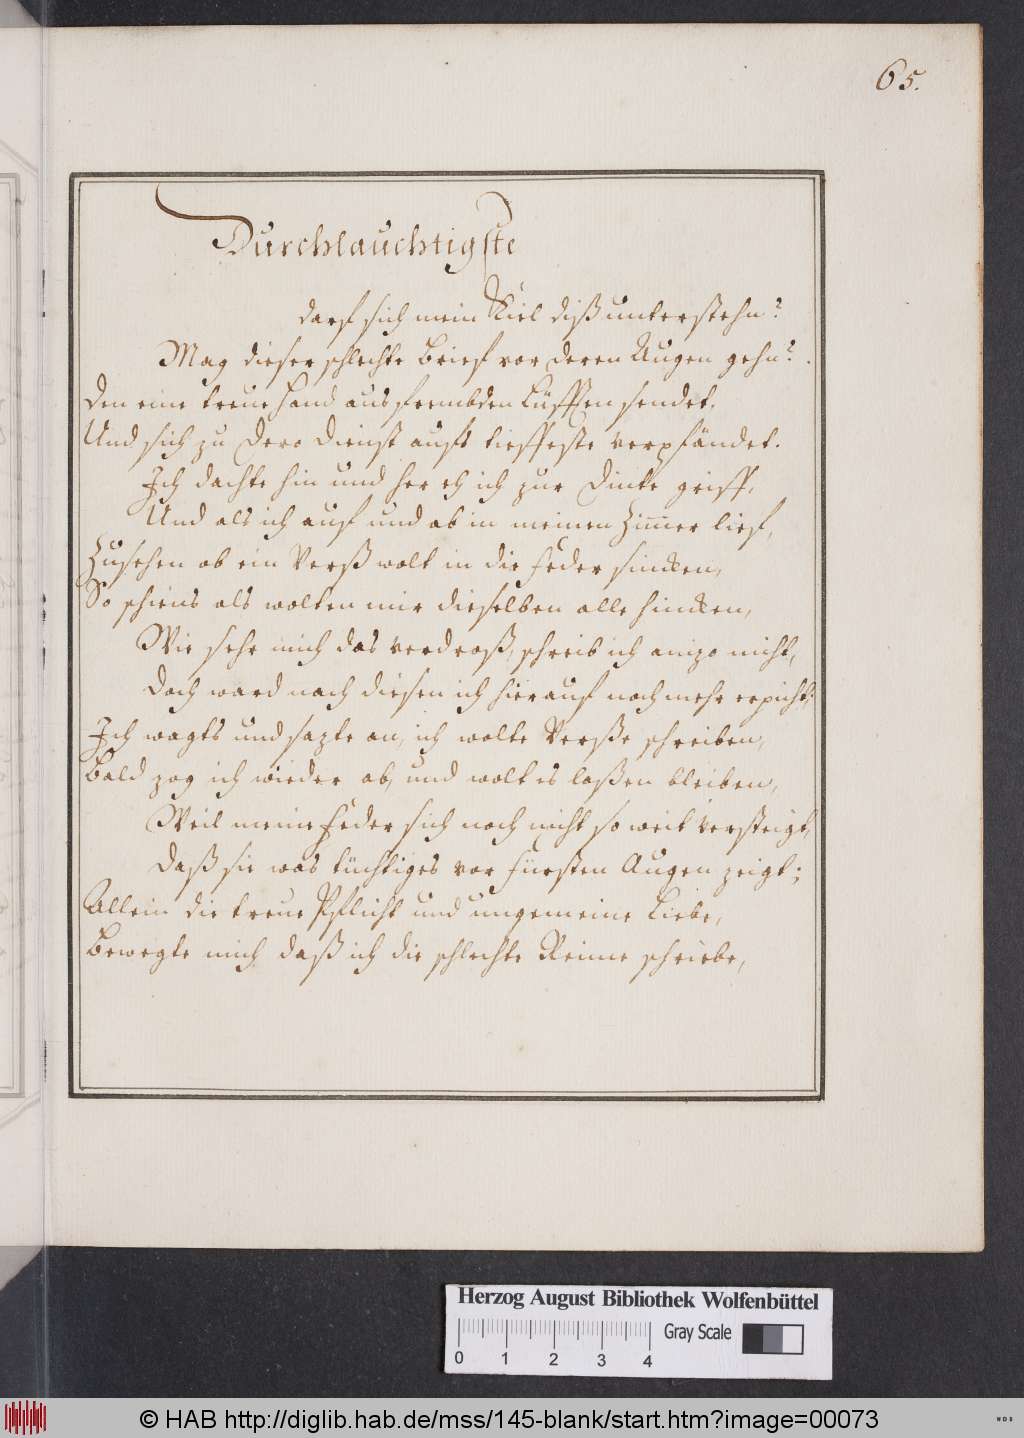 65.
Durchlauchtigste
darf sich mein Kiel diß unterstehn?
Mag dieser schlechte Brief vor deren Augen gehn?
Den eine treue Hand aus frembden Lüfften sendet.
Und sich zu Dero Dienst aufs tieffeste verpfändet.
Ich dachte hin und her eh ich zur Dinte griff,
Und als ich auf und ab in meinen Zimmer lief,
Zusehen ob ein Verß wolt in die Feder sincken,
So schiens als wolten mir dieselben alle hincken,
Wie sehr mich das verdroß, schreib ich anizo nicht,
Doch ward nach diesen ich hierauf noch mehr erpicht;
Ich wagts und sazte an, ich wolte Verße schreiben,
Bald zog ich wieder ab, und wolt es laßen bleiben,
Weil meine Feder sich noch nicht so weit versteigt,
Daß sie was tüchtiges vor Fürsten Augen zeigt;
Allein die treue Pflicht und ungemeine Liebe,
Bewegte mich daß ich die schlechte Reime schriebe,
Herzog August Bibliothek Wolfenbüttel
Gray Scale
0 1 2 3 4
© HAB http://diglib.hab.de/mss/145-blank/start.htm?image=00073